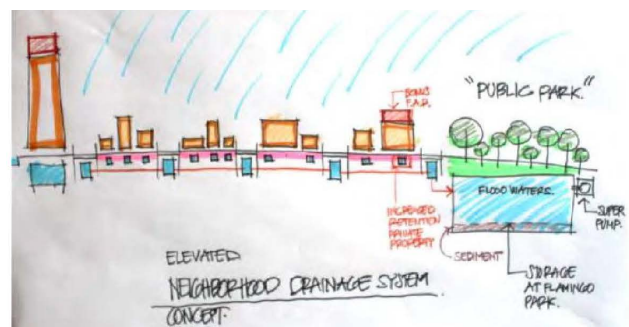 BONUS
F.A.R.
"PUBLIC PARK."
FLOOD WATERS.
SUPER
PUMP.
INCREASED
RETENTION
PRIVATE
PROPERTY
SEDIMENT
STORAGE
AT FLAMINGO
PARK.
ELEVATED
NEIGHBORHOOD DRAINAGE SYSTEM
CONCEPT.